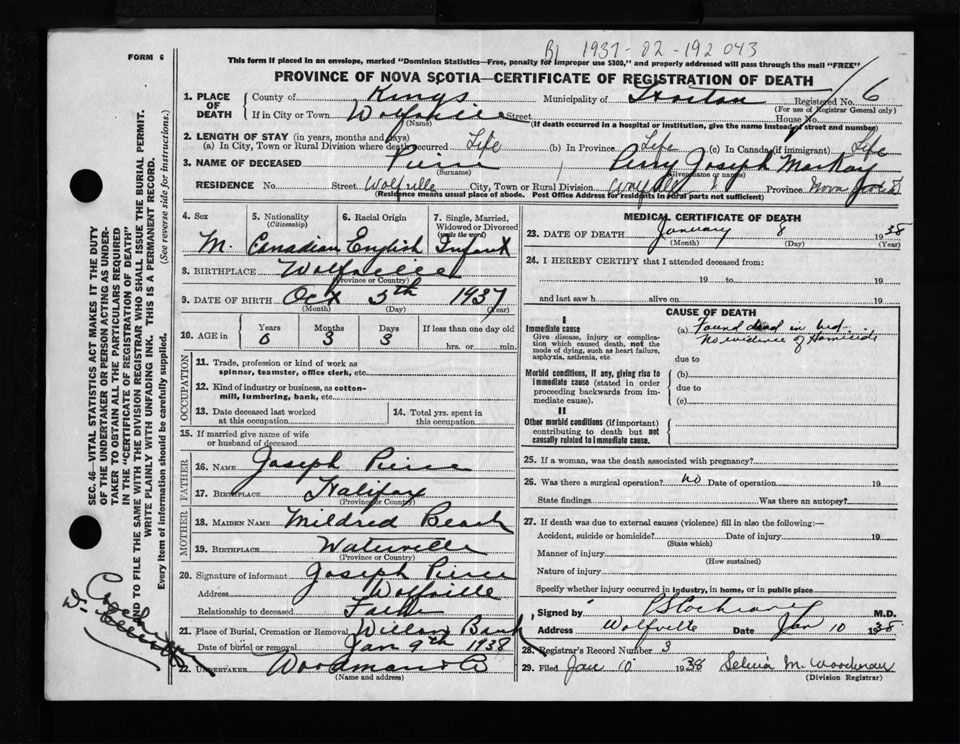 BJ 1937-02-192043
FORM 6
This form if placed in an envelope, marked "Dominion Statistics—Free, penalty for improper use $300," and properly addressed will pass through the mail "FREE"
PROVINCE OF NOVA SCOTIA—CERTIFICATE OF REGISTRATION OF DEATH
1. PLACE OF DEATH County of Kings Municipality of Horton Registered No. 6
(For use of Registrar General only)
If in City or Town Wolfville Street House No.
(Name) (If death occurred in a hospital or institution, give the name instead of street and number)
2. LENGTH OF STAY (in years, months and days)
(a) In City, Town or Rural Division where death occurred Life (b) In Province Life (c) In Canada (if immigrant) Life
3. NAME OF DECEASED Pierce Percy Joseph MacKay
(Surname) (Given name or names)
RESIDENCE No. Street Wolfville City, Town or Rural Division Wolfville Province Nova Scotia
(Residence means usual place of abode. Post Office Address for residents in rural parts not sufficient)
4. Sex 5. Nationality 6. Racial Origin 7. Single, Married,
(Citizenship) Widowed or Divorced
(write the word)
M. Canadian English Infant
8. BIRTHPLACE Wolfville
(Province or Country)
9. DATE OF BIRTH Oct 5th 1937
(Month) (Day) (Year)
10. AGE in Years Months Days If less than one day old
0 3 3 hrs. or min.
OCCUPATION
11. Trade, profession or kind of work as
spinner, teamster, office clerk, etc.
12. Kind of industry or business, as cotton-
mill, lumbering, bank, etc.
13. Date deceased last worked 14. Total yrs. spent in
at this occupation this occupation
15. If married give name of wife
or husband of deceased
FATHER
16. NAME Joseph Pierce
17. BIRTHPLACE Halifax
(Province or Country)
MOTHER
18. MAIDEN NAME Mildred
19. BIRTHPLACE Waterville
(Province or Country)
20. Signature of informant Joseph Pierce
Address Wolfville
Relationship to deceased Father
21. Place of Burial, Cremation or Removal Willow Bank
Date of burial or removal Jan 9th 1938
22. UNDERTAKER Woodman
(Name and address)
MEDICAL CERTIFICATE OF DEATH
23. DATE OF DEATH January 8 1938
(Month) (Day) (Year)
24. I HEREBY CERTIFY that I attended deceased from:
19 to 19
and last saw h alive on 19
CAUSE OF DEATH
I
Immediate cause
Give disease, injury or complica-
tion which caused death, not the
mode of dying, such as heart failure,
asphyxia, asthenia, etc.
(a) Found dead in bed.
No evidence of Homicide
due to
Morbid conditions, if any, giving rise to
immediate cause (stated in order
proceeding backwards from im-
mediate cause).
(b)
due to
(c)
II
Other morbid conditions (if important)
contributing to death but not
causally related to immediate cause.
25. If a woman, was the death associated with pregnancy?
26. Was there a surgical operation? No Date of operation 19
State findings Was there an autopsy?
27. If death was due to external causes (violence) fill in also the following:—
Accident, suicide or homicide? Date of injury 19
(State which)
Manner of injury
(How sustained)
Nature of injury
Specify whether injury occurred in industry, in home, or in public place
Signed by P S Cochrane M.D.
Address Wolfville Date Jan 10 1938
28. Registrar's Record Number 3
29. Filed Jan 10 1938 M. Woodman
(Division Registrar)
SEC. 46—VITAL STATISTICS ACT MAKES IT THE DUTY
OF THE UNDERTAKER OR PERSON ACTING AS UNDER-
TAKER TO OBTAIN ALL THE PARTICULARS REQUIRED
IN THE "CERTIFICATE OF REGISTRATION OF DEATH"
AND TO FILE THE SAME WITH THE DIVISION REGISTRAR WHO SHALL ISSUE THE BURIAL PERMIT.
WRITE PLAINLY WITH UNFADING INK. THIS IS A PERMANENT RECORD.
Every item of information should be carefully supplied. (See reverse side for instructions.)